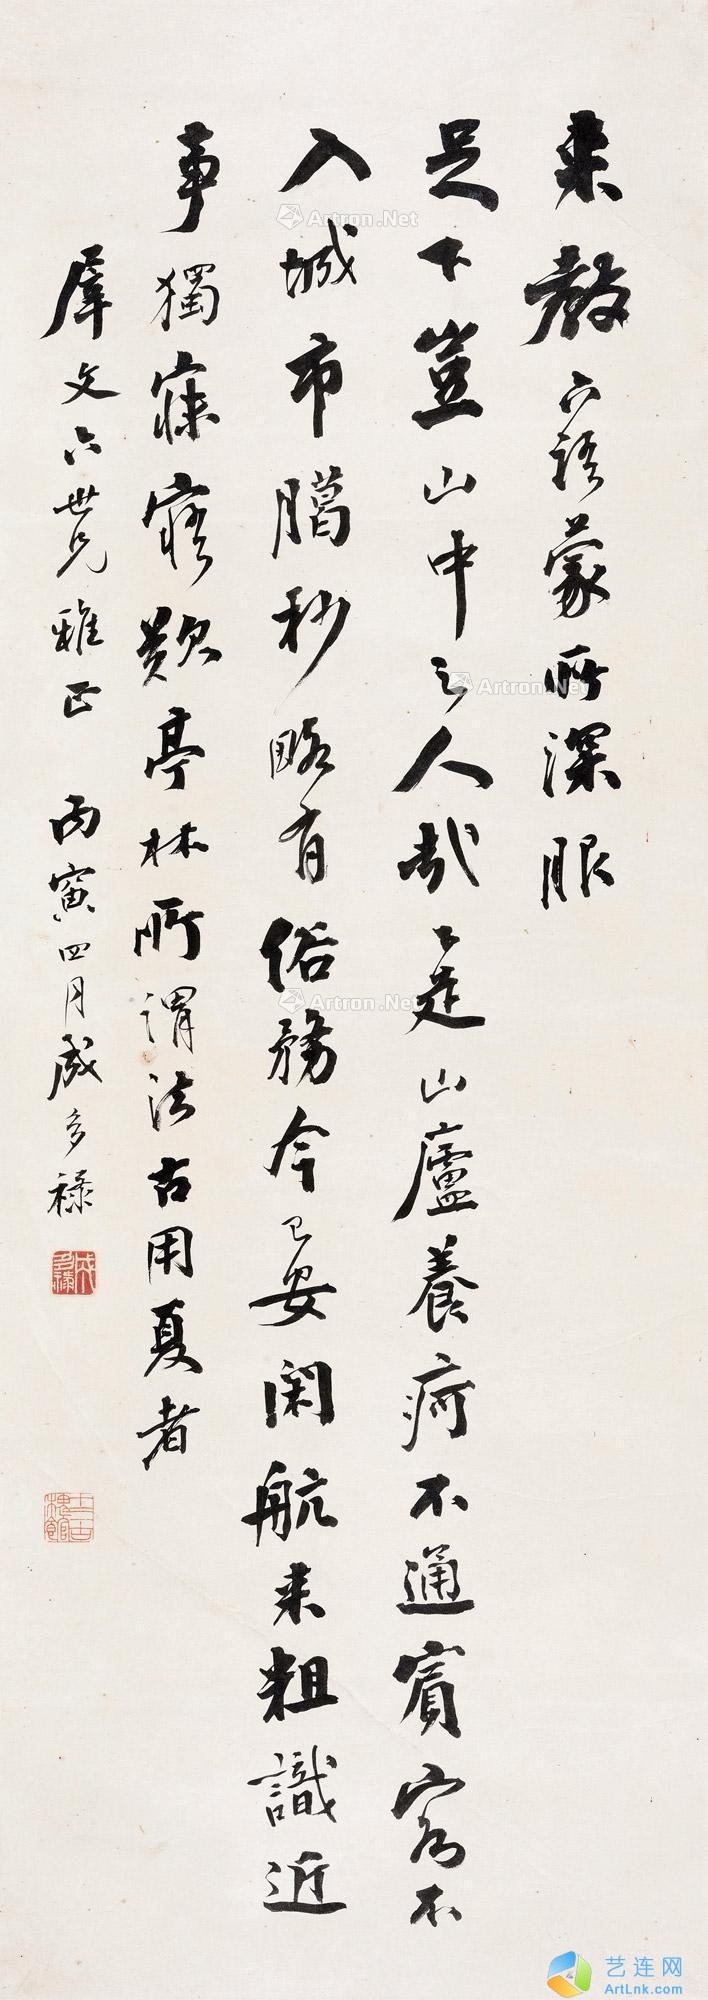 来教六語蒙所深服
足下豈山中之人哉走山廬養痾不通賓客不
入城市臈秒略有俗務今已安閑航来粗識近
事獨寐寤歎亭林所謂法古用夏者
羣文六世兄雅正 丙寅四月成多禄
成多禄
十三古槐館
Artron.Net
Artron.Net
Artron.Net
艺连网
ArtLnk.com